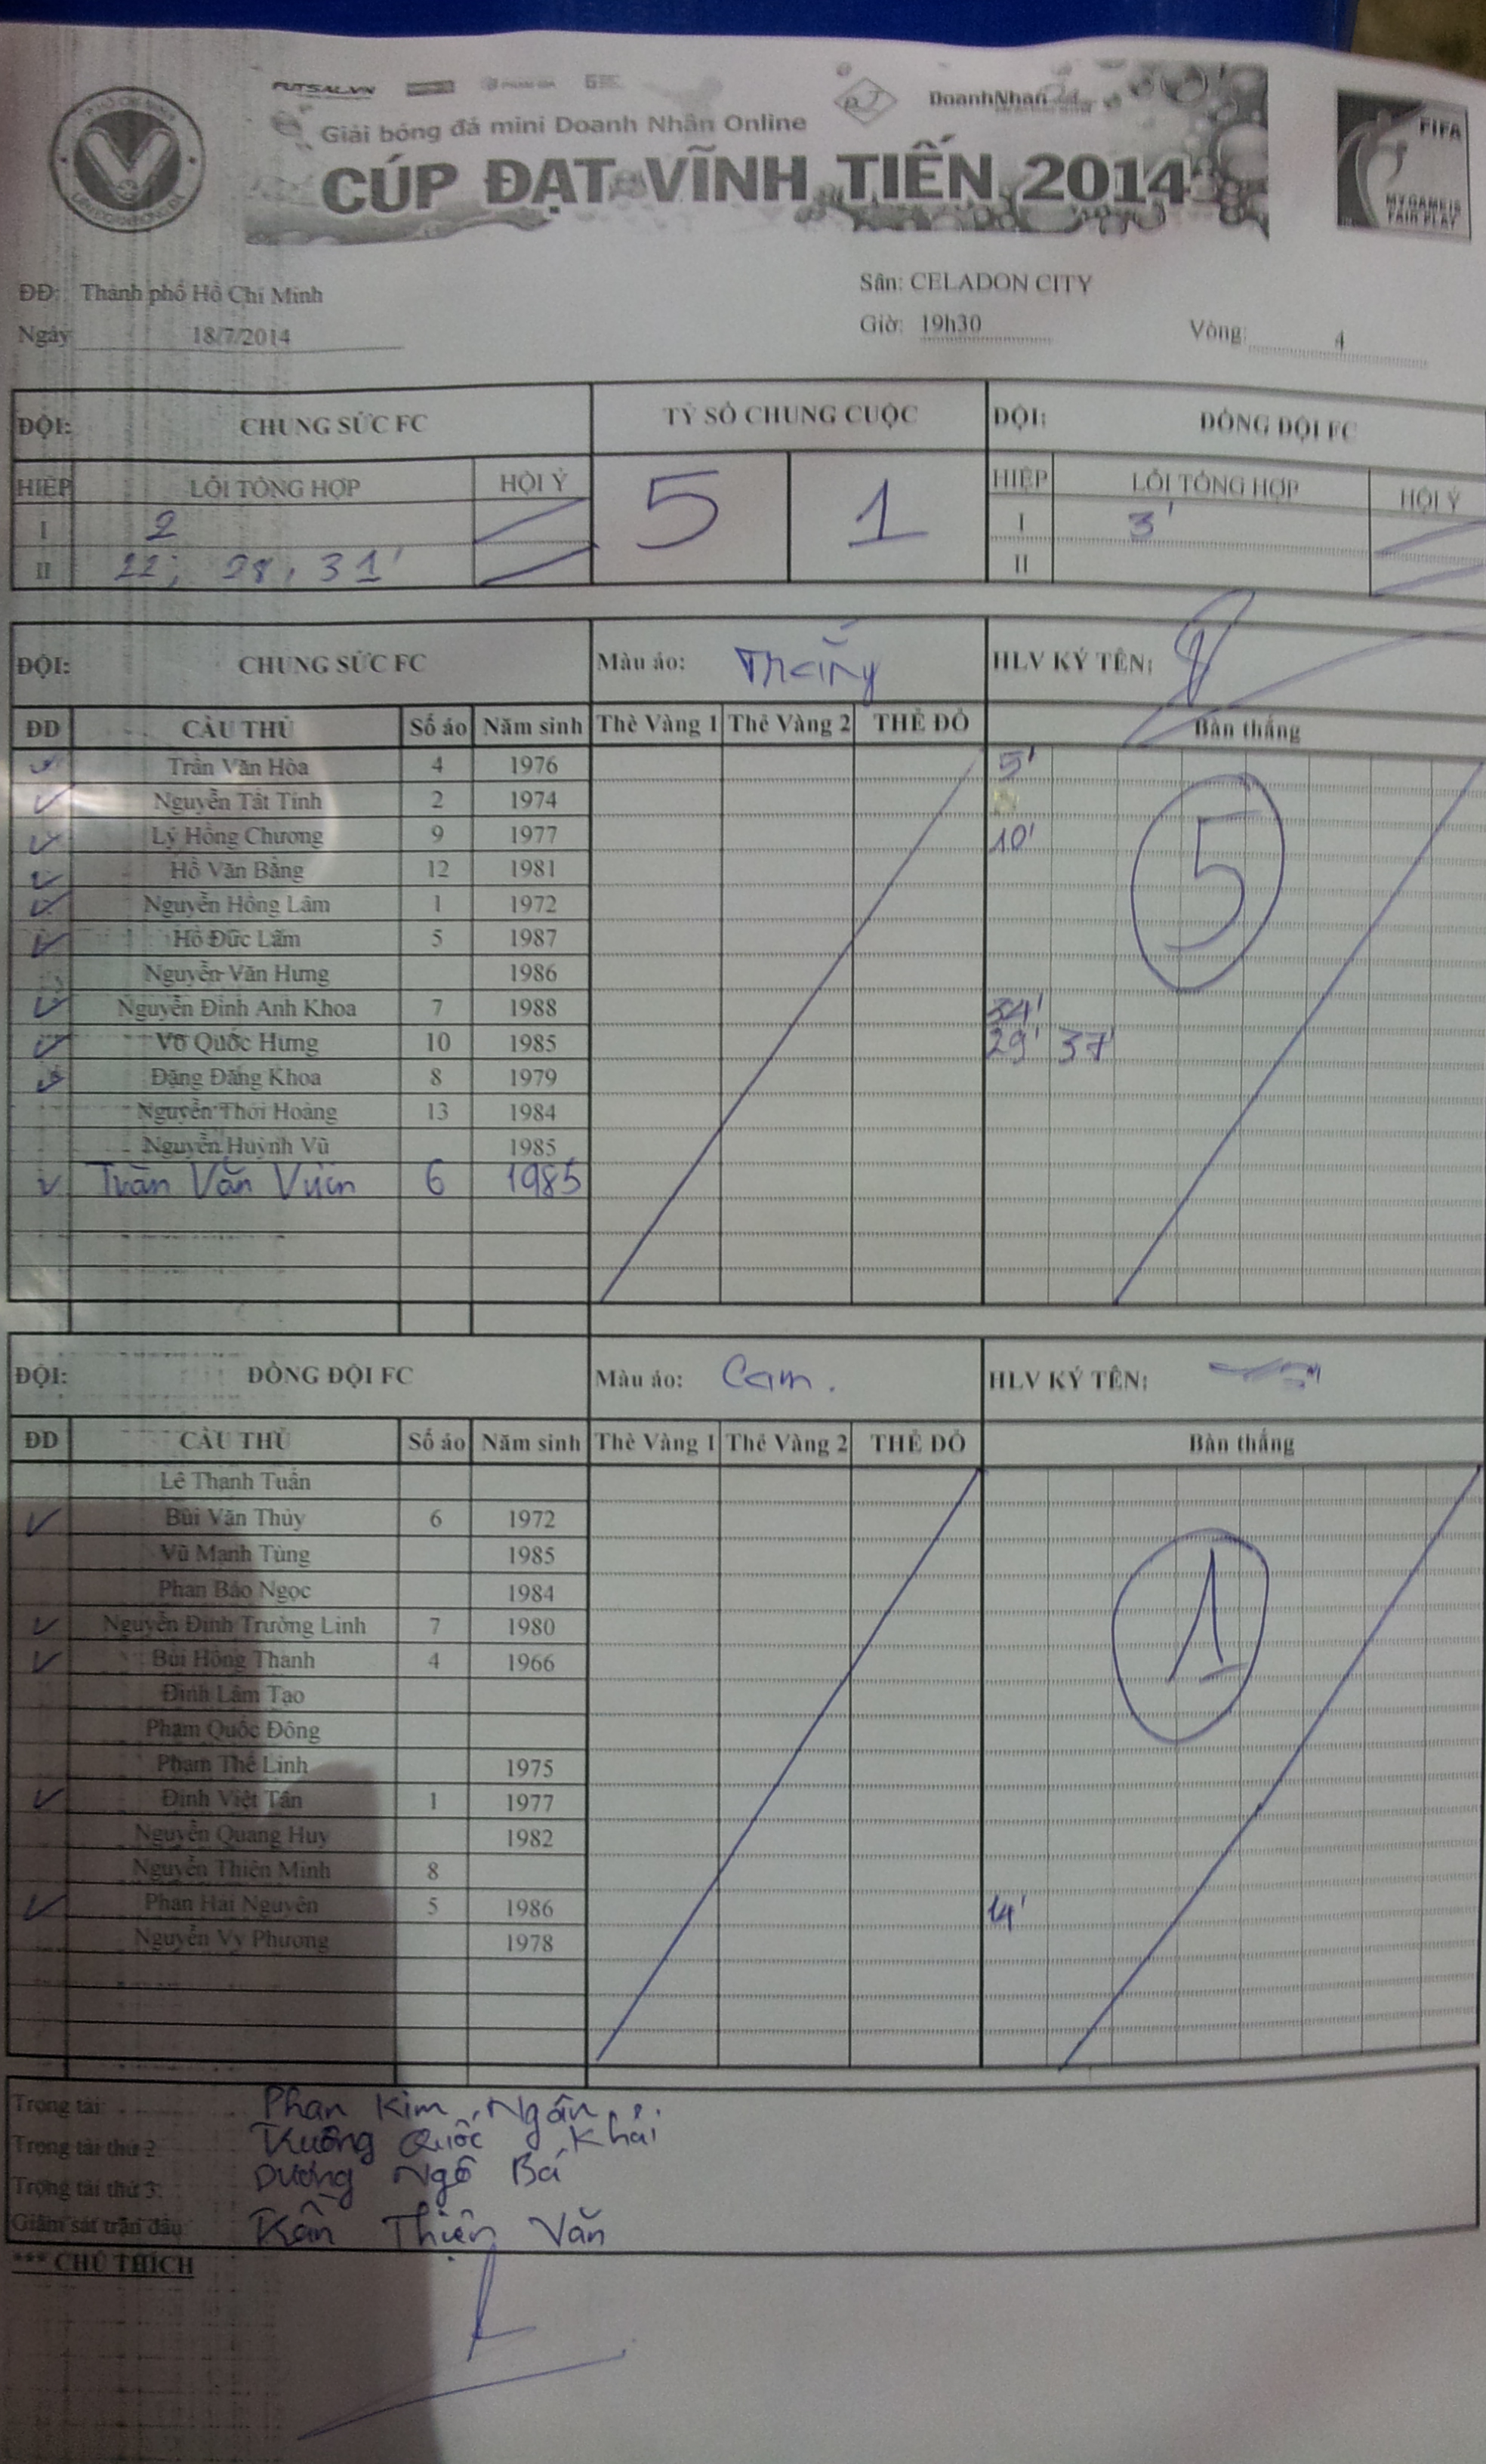 FUTSAL.VN
DoanhNhan
Giải bóng đá mini Doanh Nhân Online
CÚP ĐẠT VĨNH TIẾN 2014
FIFA
MY GAME IS
FAIR PLAY
ĐĐ: Thành phố Hồ Chí Minh Sân: CELADON CITY
Ngày 18/7/2014 Giờ: 19h30 Vòng: 4
ĐỘI: CHUNG SỨC FC TỶ SỐ CHUNG CUỘC ĐỘI: ĐỒNG ĐỘI FC
HIỆP LỖI TỔNG HỢP HỘI Ý 5 1 HIỆP LỖI TỔNG HỢP HỘI Ý
I 2 I 3'
II 22; 28, 31' II
ĐỘI: CHUNG SỨC FC Màu áo: Trắng HLV KÝ TÊN:
ĐD CẦU THỦ Số áo Năm sinh Thẻ Vàng 1 Thẻ Vàng 2 THẺ ĐỎ Bàn thắng
Trần Văn Hòa 4 1976 5'
Nguyễn Tất Tính 2 1974
Lý Hồng Chương 9 1977 10'
Hồ Văn Bằng 12 1981
Nguyễn Hồng Lâm 1 1972
Hồ Đức Lãm 5 1987
Nguyễn Văn Hưng 1986
Nguyễn Đình Anh Khoa 7 1988 34'
Võ Quốc Hưng 10 1985 29' 37'
Đặng Đăng Khoa 8 1979
Nguyễn Thới Hoàng 13 1984
Nguyễn Huỳnh Vũ 1985
Trần Văn 6 1985
5
ĐỘI: ĐỒNG ĐỘI FC Màu áo: Cam. HLV KÝ TÊN:
ĐD CẦU THỦ Số áo Năm sinh Thẻ Vàng 1 Thẻ Vàng 2 THẺ ĐỎ Bàn thắng
Lê Thanh Tuấn
Bùi Văn Thủy 6 1972
Vũ Mạnh Tùng 1985
Phan Bảo Ngọc 1984
Nguyễn Đình Trường Linh 7 1980
Bùi Hồng Thanh 4 1966
Đinh Lâm Tạo
Phạm Quốc Đông
Phạm Thế Linh 1975
Đinh Việt Tân 1 1977
Nguyễn Quang Huy 1982
Nguyễn Thiện Minh 8
Phan Hải Nguyên 5 1986 14'
Nguyễn Vy Phương 1978
1
Trọng tài: Phan Kim Ngân
Trọng tài thứ 2 Trương Quốc Khải
Trọng tài thứ 3: Dương Ngô Bá
Giám sát trận đấu: Trần Thiện Văn
*** CHÚ THÍCH